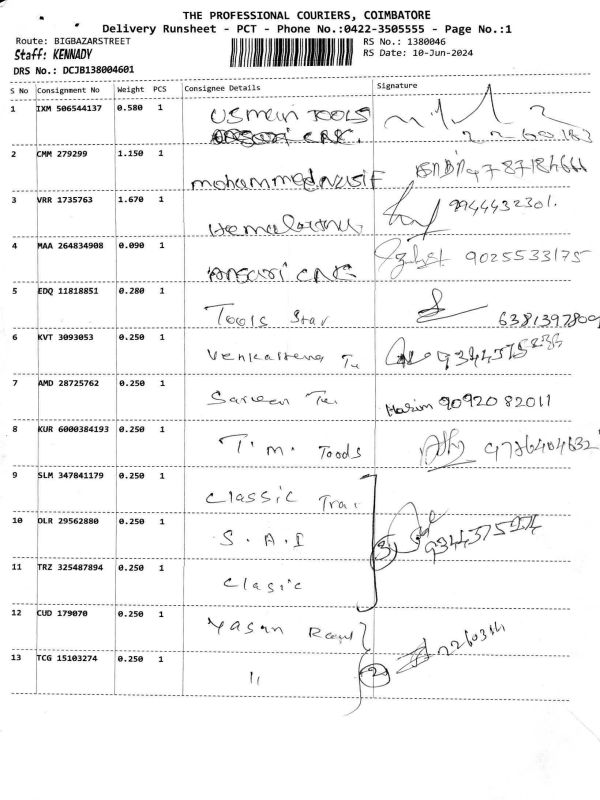 THE PROFESSIONAL COURIERS, COIMBATORE
Delivery Runsheet - PCT - Phone No.:0422-3505555 - Page No.:1
Route: BIGBAZARSTREET RS No.: 1380046
Staff: KENNADY RS Date: 10-Jun-2024
DRS No.: DCJB138004601
S No Consignment No Weight PCS Consignee Details Signature
1 IXM 506544137 0.580 1 USMAIN TOOLS
2 CMM 279299 1.150 1 mohammed NUSIF
3 VRR 1735763 1.670 1 9944432301.
4 MAA 264834908 0.090 1 ANSARI CNC 9025533175
5 EDQ 11818851 0.280 1 Tools Star 6381397809
6 KVT 3093053 0.250 1
7 AMD 28725762 0.250 1 Harim 90920 82011
8 KUR 6000384193 0.250 1 T. M. Tools 9786404632
9 SLM 347841179 0.250 1 Classic Tra.
10 OLR 29562880 0.250 1 S. A. I 3
11 TRZ 325487894 0.250 1 Clasic
12 CUD 179070 0.250 1 Yasan
13 TCG 15103274 0.250 1 11 2